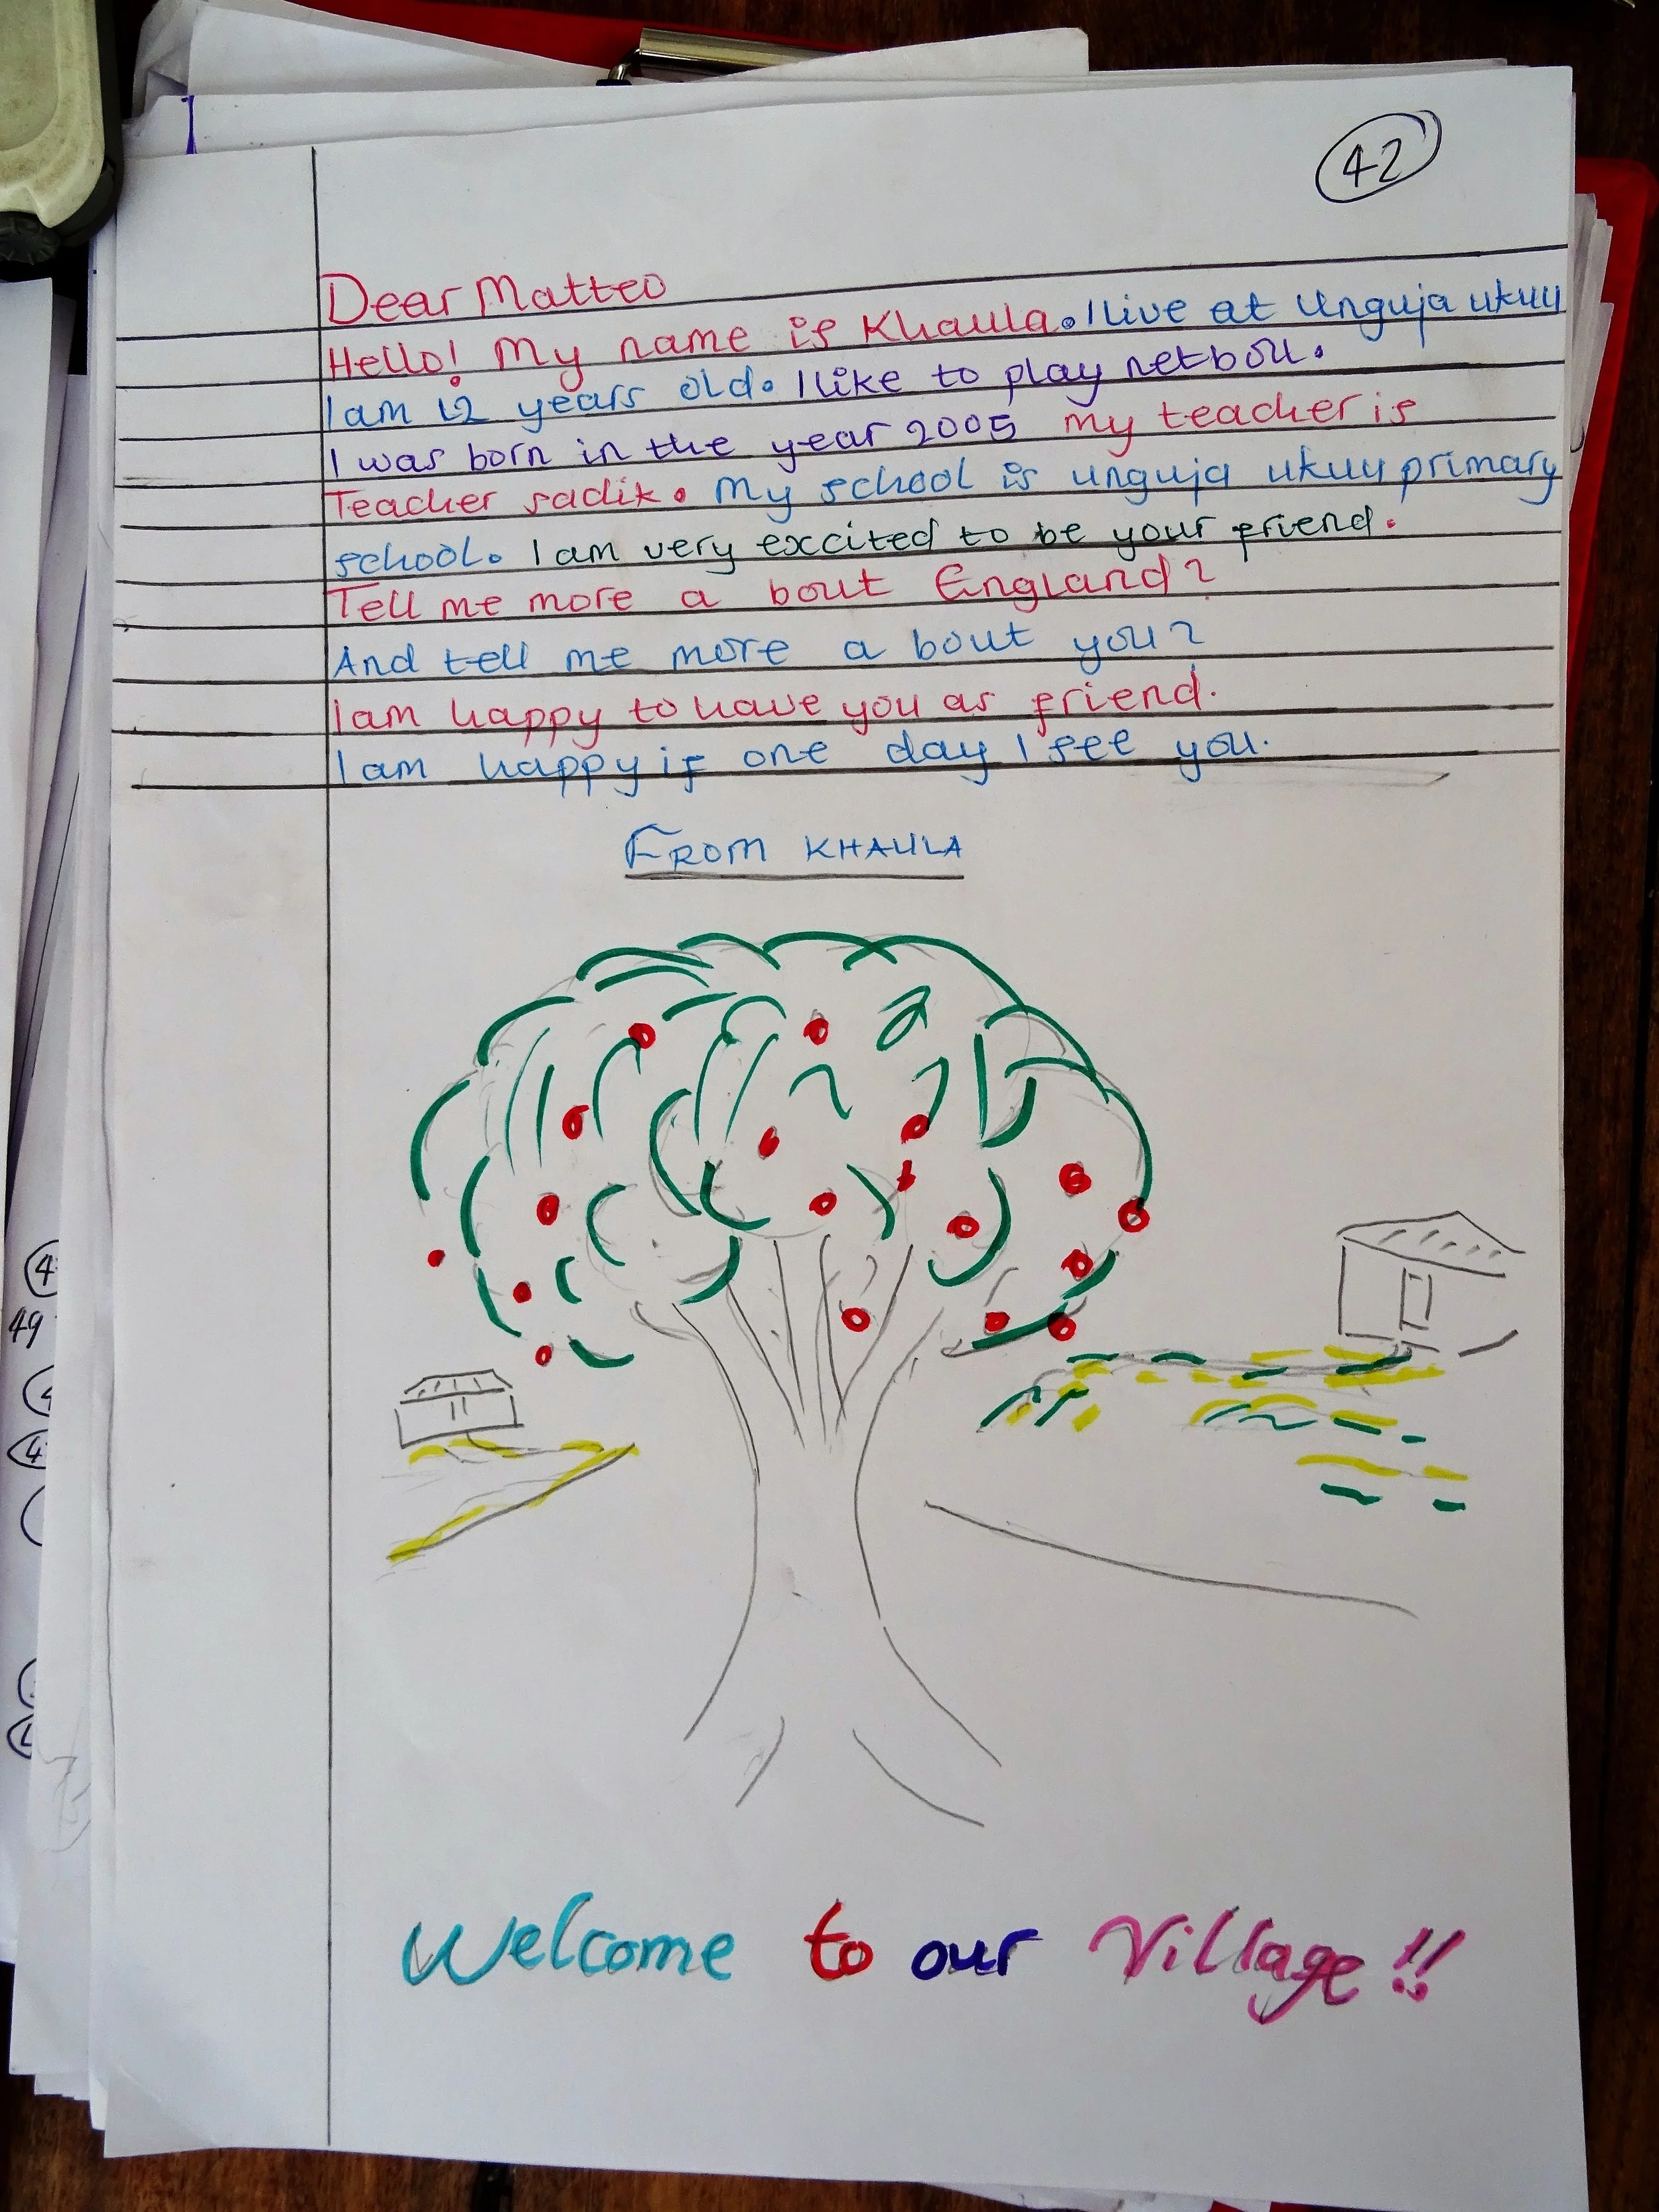 42
Dear Matteo
Hello! My name is Khaula. I live at Unguja ukuu
I am 12 years old. I like to play netboll.
I was born in the year 2005 my teacher is
Teacher sadik. My school is unguja ukuu primary
school. I am very excited to be your friend.
Tell me more a bout England?
And tell me more a bout you?
I am happy to have you as friend.
I am happy if one day I see you.
FROM KHAULA
49
Welcome to our Village!!